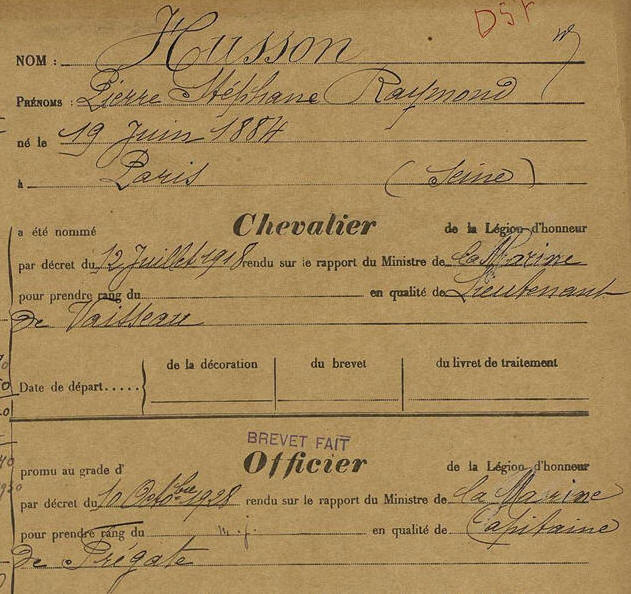 NOM : Husson
PRÉNOMS : Pierre Stéphane Raymond
né le 19 Juin 1884
à Paris (Seine)
a été nommé Chevalier de la Légion d'honneur
par décret du 12 Juillet 1918 rendu sur le rapport du Ministre de la Marine
pour prendre rang du en qualité de Lieutenant
de Vaisseau
de la décoration du brevet du livret de traitement
Date de départ.....
BREVET FAIT
promu au grade d' Officier de la Légion d'honneur
par décret du 10 Octobre 1928 rendu sur le rapport du Ministre de la Marine
pour prendre rang du m. j. en qualité de Capitaine
de Frégate